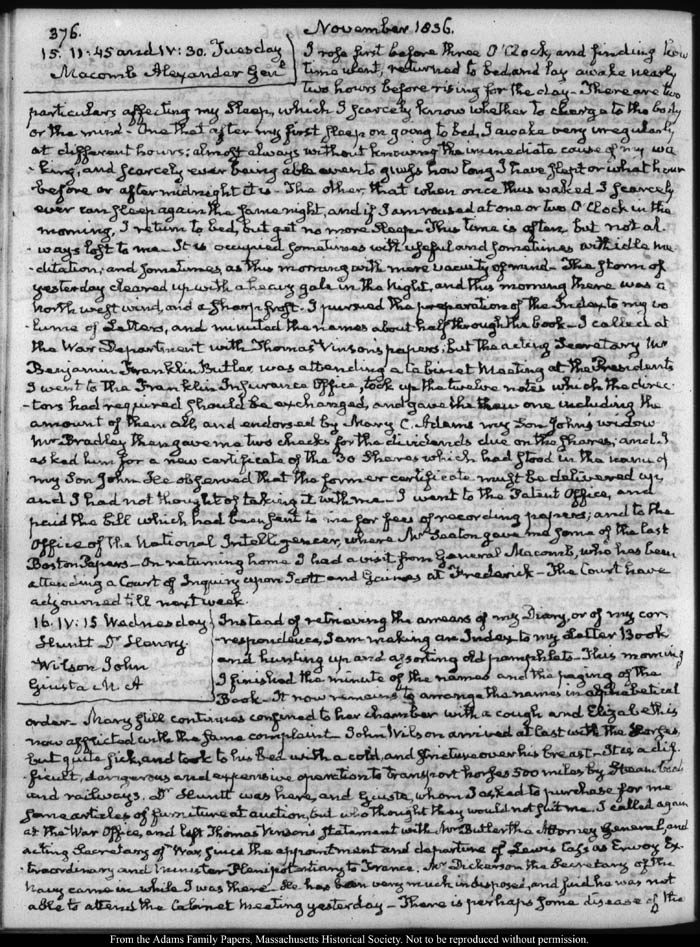 376.
November 1836.
15. II:45 and IV:30. Tuesday
Macomb Alexander Genl
I rose first before three O'Clock, and finding how
time went, returned to bed and lay awake nearly
two hours before rising for the day - There are two
particulars affecting my sleep, which I scarcely know whether to charge to the body
or the mind - One that after my first sleep on going to bed, I awake very irregularly
at different hours; almost always without knowing the immediate cause of my wa
-king, and scarcely ever being able even to guess how long I have slept or what hour
before or after midnight it is - The other, that when once thus waked I scarcely
ever can sleep again the same night, and if I am roused at one or two O'Clock in the
morning, I return to bed, but get no more sleep - This time is often but not al
-ways lost to me - It is occupied sometimes with useful and sometimes with idle me
-ditation; and sometimes, as this morning with mere vacuity of mind - The storm of
yesterday cleared up with a heavy gale in the Night, and this morning there was a
North west wind, and a sharp frost. I pursued the preparation of the Index to my vo
-lume of Letters, and minuted the names about half through the book - I called at
the War Department with Thomas Vinson's papers; but the acting Secretary Mr
Benjamin Franklin Butler was attending a Cabinet Meeting at the Presidents
I went to the Franklin Insurance Office, took up the twelve notes which the direc
-tors had required should be exchanged, and gave them one including the
amount of them all, and endorsed by Mary C. Adams my Son John's widow
Mr Bradley then gave me two checks for the dividends due on the shares; and I
asked him for a new certificate of the 30 shares which had stood in the name of
my Son John. He observed that the former certificate must be delivered up,
and I had not thought of taking it with me - I went to the Patent Office, and
paid the bill which had been sent to me for fees of recording papers; and to the
Office of the National Intelligencer, where Mr Seaton gave me some of the last
Boston Papers - On returning home I had a visit from General Macomb, who has been
attending a Court of Inquiry upon Scott and Gaines at Frederick - The Court have
adjourned till next week.
16. IV:15 Wednesday
Huntt Dr Henry
Wilson John
Giusta M. A
Instead of retrieving the arrears of my Diary, or of my cor
-respondence, I am making an Index to my Letter Book
and hunting up and assorting old pamphlets - This morning
I finished the minute of the names and the paging of the
Book - It now remains to arrange the names in alphabetical
order - Mary still continues confined to her chamber with a cough and Elizabeth is
now afflicted with the same complaint. John Wilson arrived at last with the horses,
but quite sick, and took to his bed with a cold, and stricture over his breast - It is a dif
-ficult, dangerous and expensive operation to transport horses 500 miles by steam boats
and railways. Dr Huntt was here, and Giusta, whom I asked to purchase for me
some articles of furniture at auction, but who thought they would not suit me. I called again
at the War Office, and left Thomas Vinson's statement with Mr Butler the Attorney General, and
acting Secretary of War since the appointment and departure of Lewis Cass as Envoy Ex-
traordinary and Minister Plenipotentiary to France. Mr Dickerson the Secretary of the
Navy came in while I was there - He has been very much indisposed, and said he was not
able to attend the Cabinet meeting yesterday - There is perhaps some disease of the
From the Adams Family Papers, Massachusetts Historical Society. Not to be reproduced without permission.